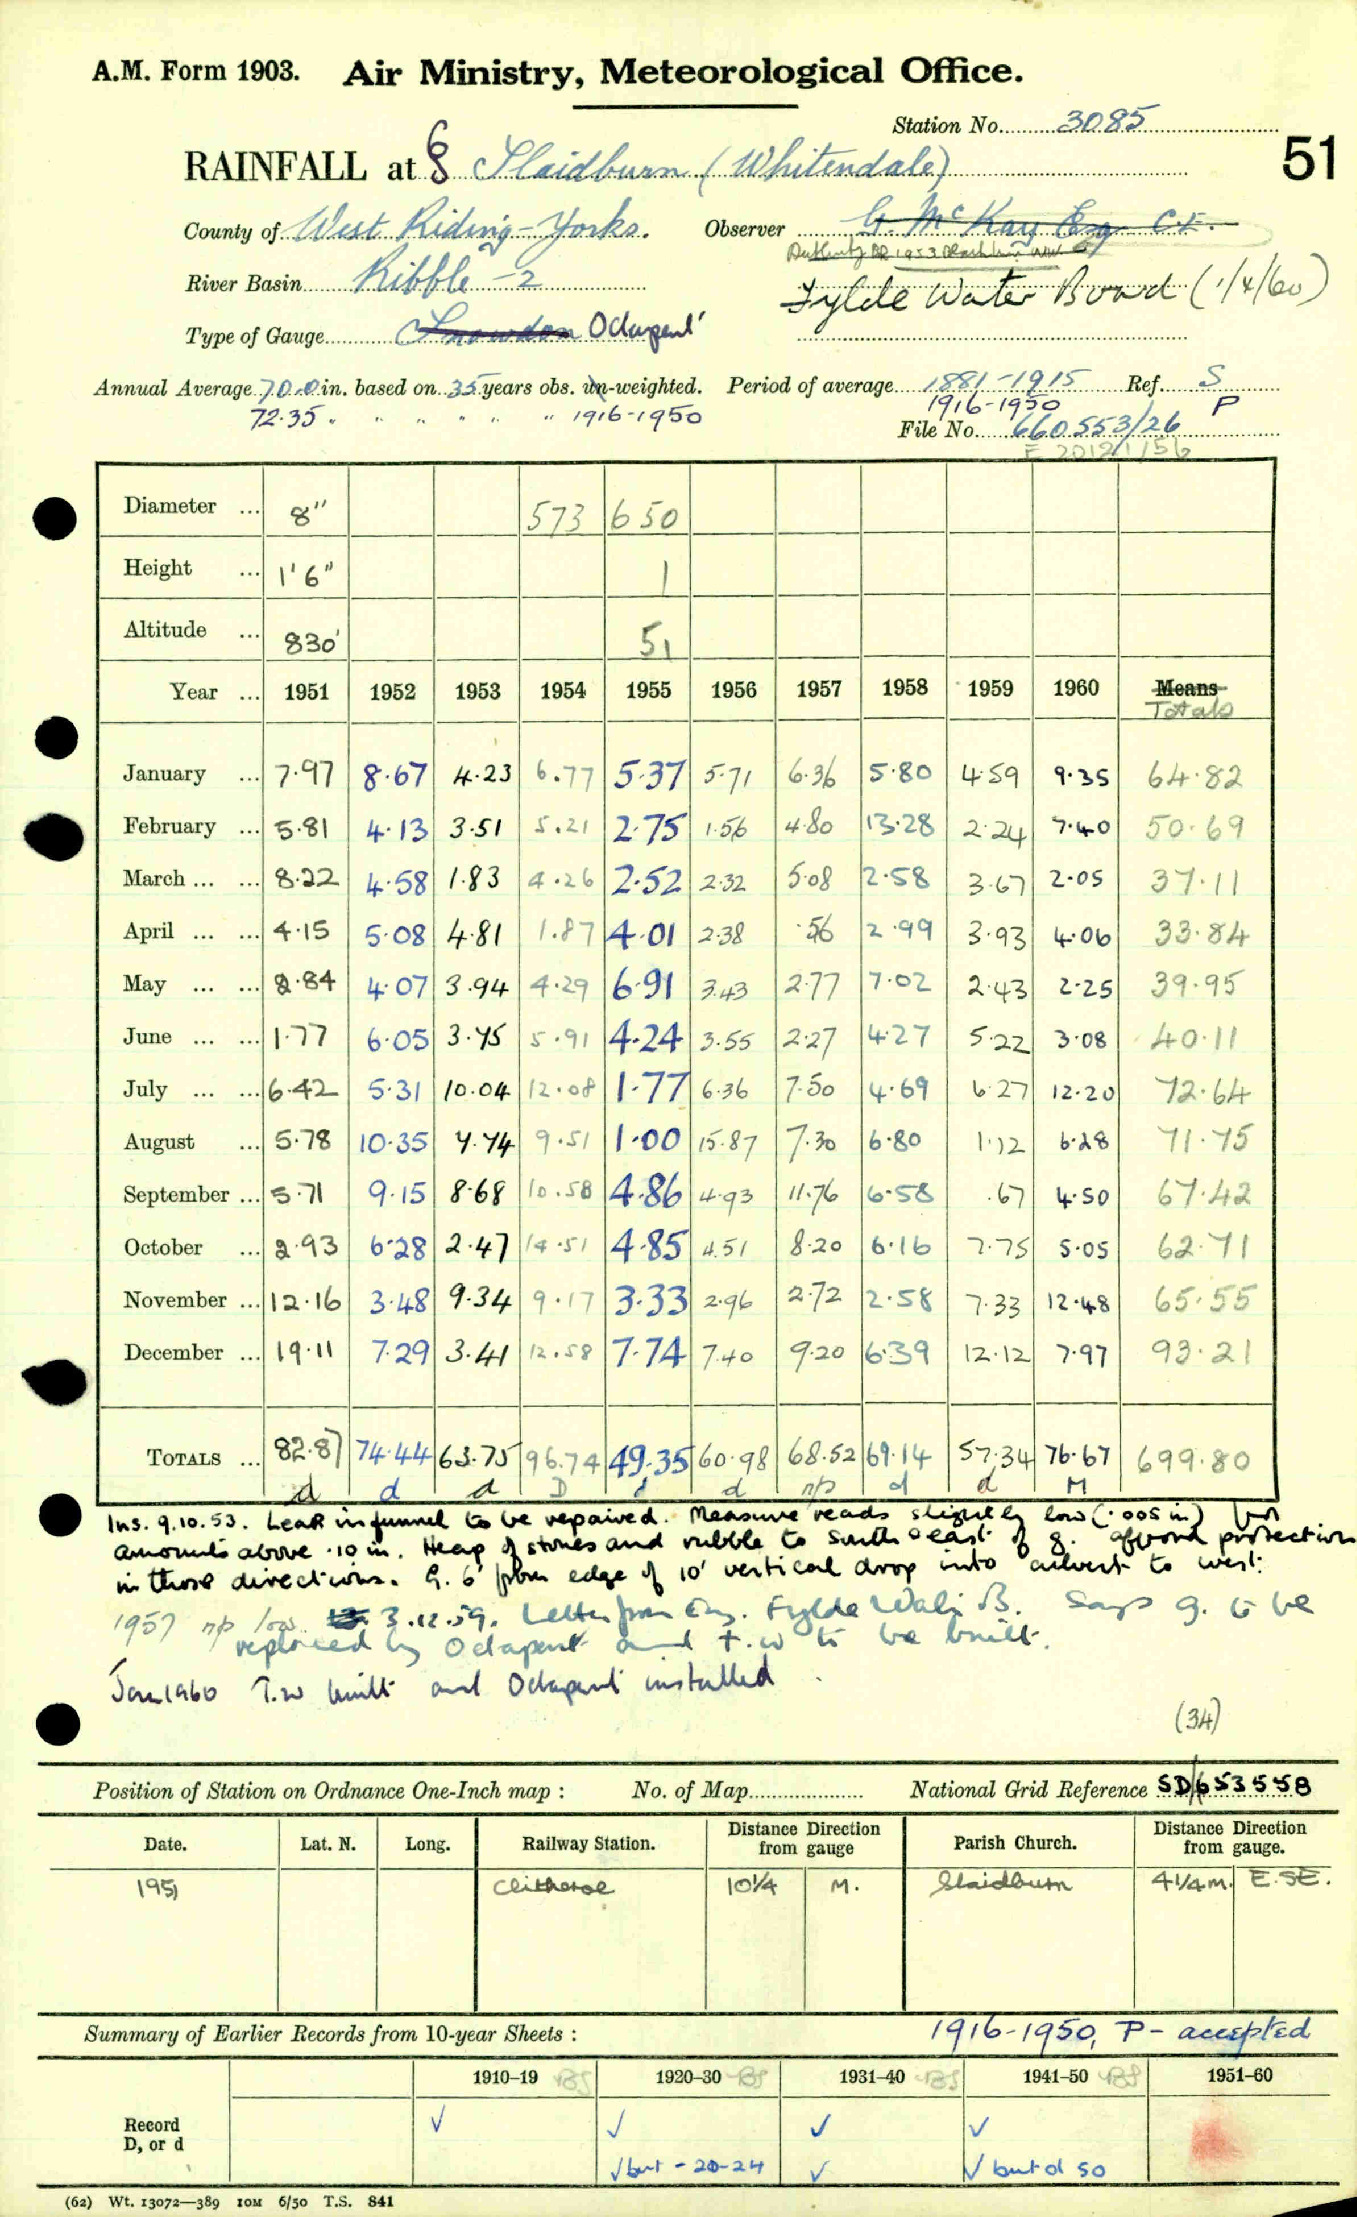 A.M. Form 1903. Air Ministry, Meteorological Office.
Station No. 3085
RAINFALL at Slaidburn (Whitendale) 51
County of West Riding - Yorks. Observer G. McKay Esq C.E.
River Basin Ribble - 2
Fylde Water Board (1/4/60)
Type of Gauge Snowdon Octapent
Annual Average 70.0 in. based on 35 years obs. un-weighted. Period of average 1881-1915 Ref. S
72.35 " " " " " 1916-1950 1916-1950 P
File No. 660553/26
E 2012/1/56
Diameter ... 8" 573 650
Height ... 1'6" 1
Altitude ... 830' 51
Year ... 1951 1952 1953 1954 1955 1956 1957 1958 1959 1960 Means
Totals
January ... 7.97 8.67 4.23 6.77 5.37 5.71 6.36 5.80 4.59 9.35 64.82
February ... 5.81 4.13 3.51 5.21 2.75 1.56 4.80 13.28 2.24 7.40 50.69
March ... ... 8.22 4.58 1.83 4.26 2.52 2.32 5.08 2.58 3.67 2.05 37.11
April ... ... 4.15 5.08 4.81 1.87 4.01 2.38 .56 2.99 3.93 4.06 33.84
May ... ... 2.84 4.07 3.94 4.29 6.91 3.43 2.77 7.02 2.43 2.25 39.95
June ... ... 1.77 6.05 3.75 5.91 4.24 3.55 2.27 4.27 5.22 3.08 40.11
July ... ... 6.42 5.31 10.04 12.08 1.77 6.36 7.50 4.69 6.27 12.20 72.64
August ... 5.78 10.35 7.74 9.51 1.00 15.87 7.30 6.80 1.12 6.28 71.75
September ... 5.71 9.15 8.68 10.58 4.86 4.93 11.76 6.58 .67 4.50 67.42
October ... 2.93 6.28 2.47 14.51 4.85 4.51 8.20 6.16 7.75 5.05 62.71
November ... 12.16 3.48 9.34 9.17 3.33 2.96 2.72 2.58 7.33 12.48 65.55
December ... 19.11 7.29 3.41 12.58 7.74 7.40 9.20 6.39 12.12 7.97 93.21
TOTALS ... 82.87 74.44 63.75 96.74 49.35 60.98 68.52 69.14 57.34 76.67 699.80
d d d D d d n/p d d M
Ins. 9.10.53. Leak in funnel to be repaired. Measure reads slightly low (.005 in) for
amounts above .10 in. Heap of stones and rubble to south & east of g. afford protection
in those directions. G. 6' from edge of 10' vertical drop into culvert to west.
1957 n/p low 3.12.59. Letter from Eng. Fylde Water B. Says g. to be
replaced by Octapent and t.w to be built.
Jan 1960 T.w built and Octapent installed
(34)
Position of Station on Ordnance One-Inch map : No. of Map National Grid Reference SD/653558
Date. Lat. N. Long. Railway Station. Distance from Direction gauge Parish Church. Distance from Direction gauge.
1951 Clitheroe 10¼ M. Slaidburn 4¼ m. E.SE.
Summary of Earlier Records from 10-year Sheets : 1916-1950, P - accepted
1910–19 BS 1920–30 BS 1931–40 BS 1941–50 BS 1951–60
Record ✓ ✓ ✓ ✓
D, or d
✓ but - 20-24 ✓ ✓ but d 50
(62) Wt. 13072—389 10M 6/50 T.S. 841